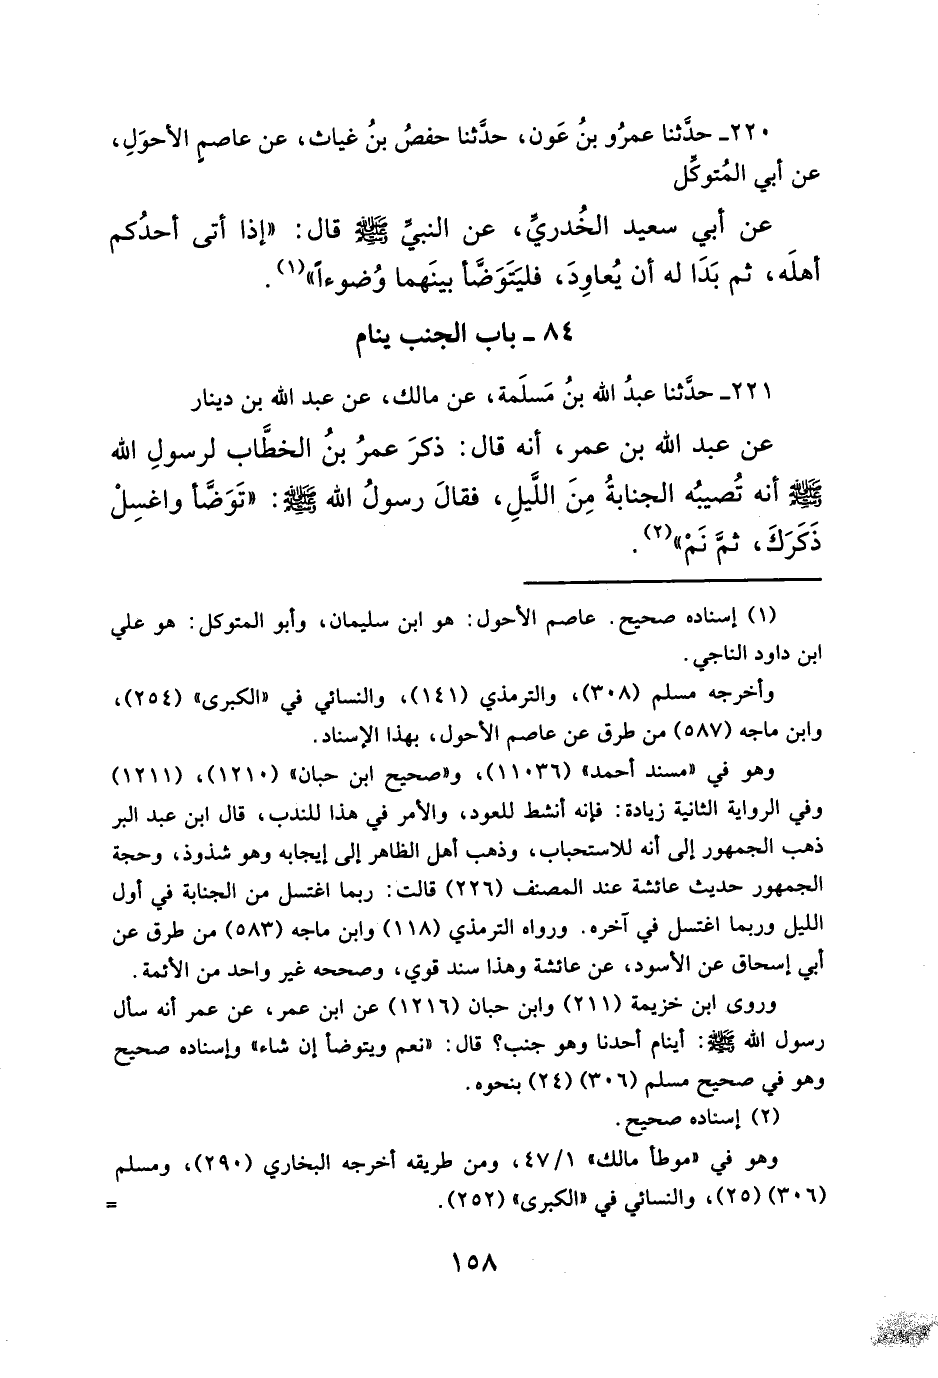 ٢٢٠ـ حدَّثنا عمرُو بنُ عَون، حدَّثنا حفصُ بنُ غياث، عن عاصمٍ الأحوَلِ،
عن أبي المُتوكِّل
عن أبي سعيد الخُدريِّ، عن النبيِّ ﷺ قال: «إذا أتى أحدُكم
أهلَه، ثم بَدَا له أن يُعاوِدَ، فليَتَوَضَّأ بينَهما وُضوءاً»(١).
٨٤ ـ باب الجنب ينام
٢٢١ـ حدَّثنا عبدُ الله بنُ مَسلَمة، عن مالك، عن عبد الله بن دينار
عن عبد الله بن عمر، أنه قال: ذكرَ عمرُ بنُ الخطَّاب لرسولِ الله
ﷺ أنه تُصيبُه الجنابةُ مِنَ اللَّيلِ، فقالَ رسولُ الله ﷺ: «تَوَضَّأ واغسِلْ
ذَكَرَكَ، ثمَّ نَمْ»(٢).
(١) إسناده صحيح. عاصم الأحول: هو ابن سليمان، وأبو المتوكل: هو علي
ابن داود الناجي.
وأخرجه مسلم (٣٠٨)، والترمذي (١٤١)، والنسائي في «الكبرى» (٢٥٤)،
وابن ماجه (٥٨٧) من طرق عن عاصم الأحول، بهذا الإسناد.
وهو في «مسند أحمد» (١١٠٣٦)، و«صحيح ابن حبان» (١٢١٠)، (١٢١١)
وفي الرواية الثانية زيادة: فإنه أنشط للعود، والأمر في هذا للندب، قال ابن عبد البر
ذهب الجمهور إلى أنه للاستحباب، وذهب أهل الظاهر إلى إيجابه وهو شذوذ، وحجة
الجمهور حديث عائشة عند المصنف (٢٢٦) قالت: ربما اغتسل من الجنابة في أول
الليل وربما اغتسل في آخره. ورواه الترمذي (١١٨) وابن ماجه (٥٨٣) من طرق عن
أبي إسحاق عن الأسود، عن عائشة وهذا سند قوي، وصححه غير واحد من الأئمة.
وروى ابن خزيمة (٢١١) وابن حبان (١٢١٦) عن ابن عمر، عن عمر أنه سأل
رسول الله ﷺ: أينام أحدنا وهو جنب؟ قال: «نعم ويتوضأ إن شاء» وإسناده صحيح
وهو في صحيح مسلم (٣٠٦) (٢٤) بنحوه.
(٢) إسناده صحيح.
وهو في «موطأ مالك» ٤٧/١، ومن طريقه أخرجه البخاري (٢٩٠)، ومسلم
(٣٠٦) (٢٥)، والنسائي في «الكبرى» (٢٥٢). =
١٥٨